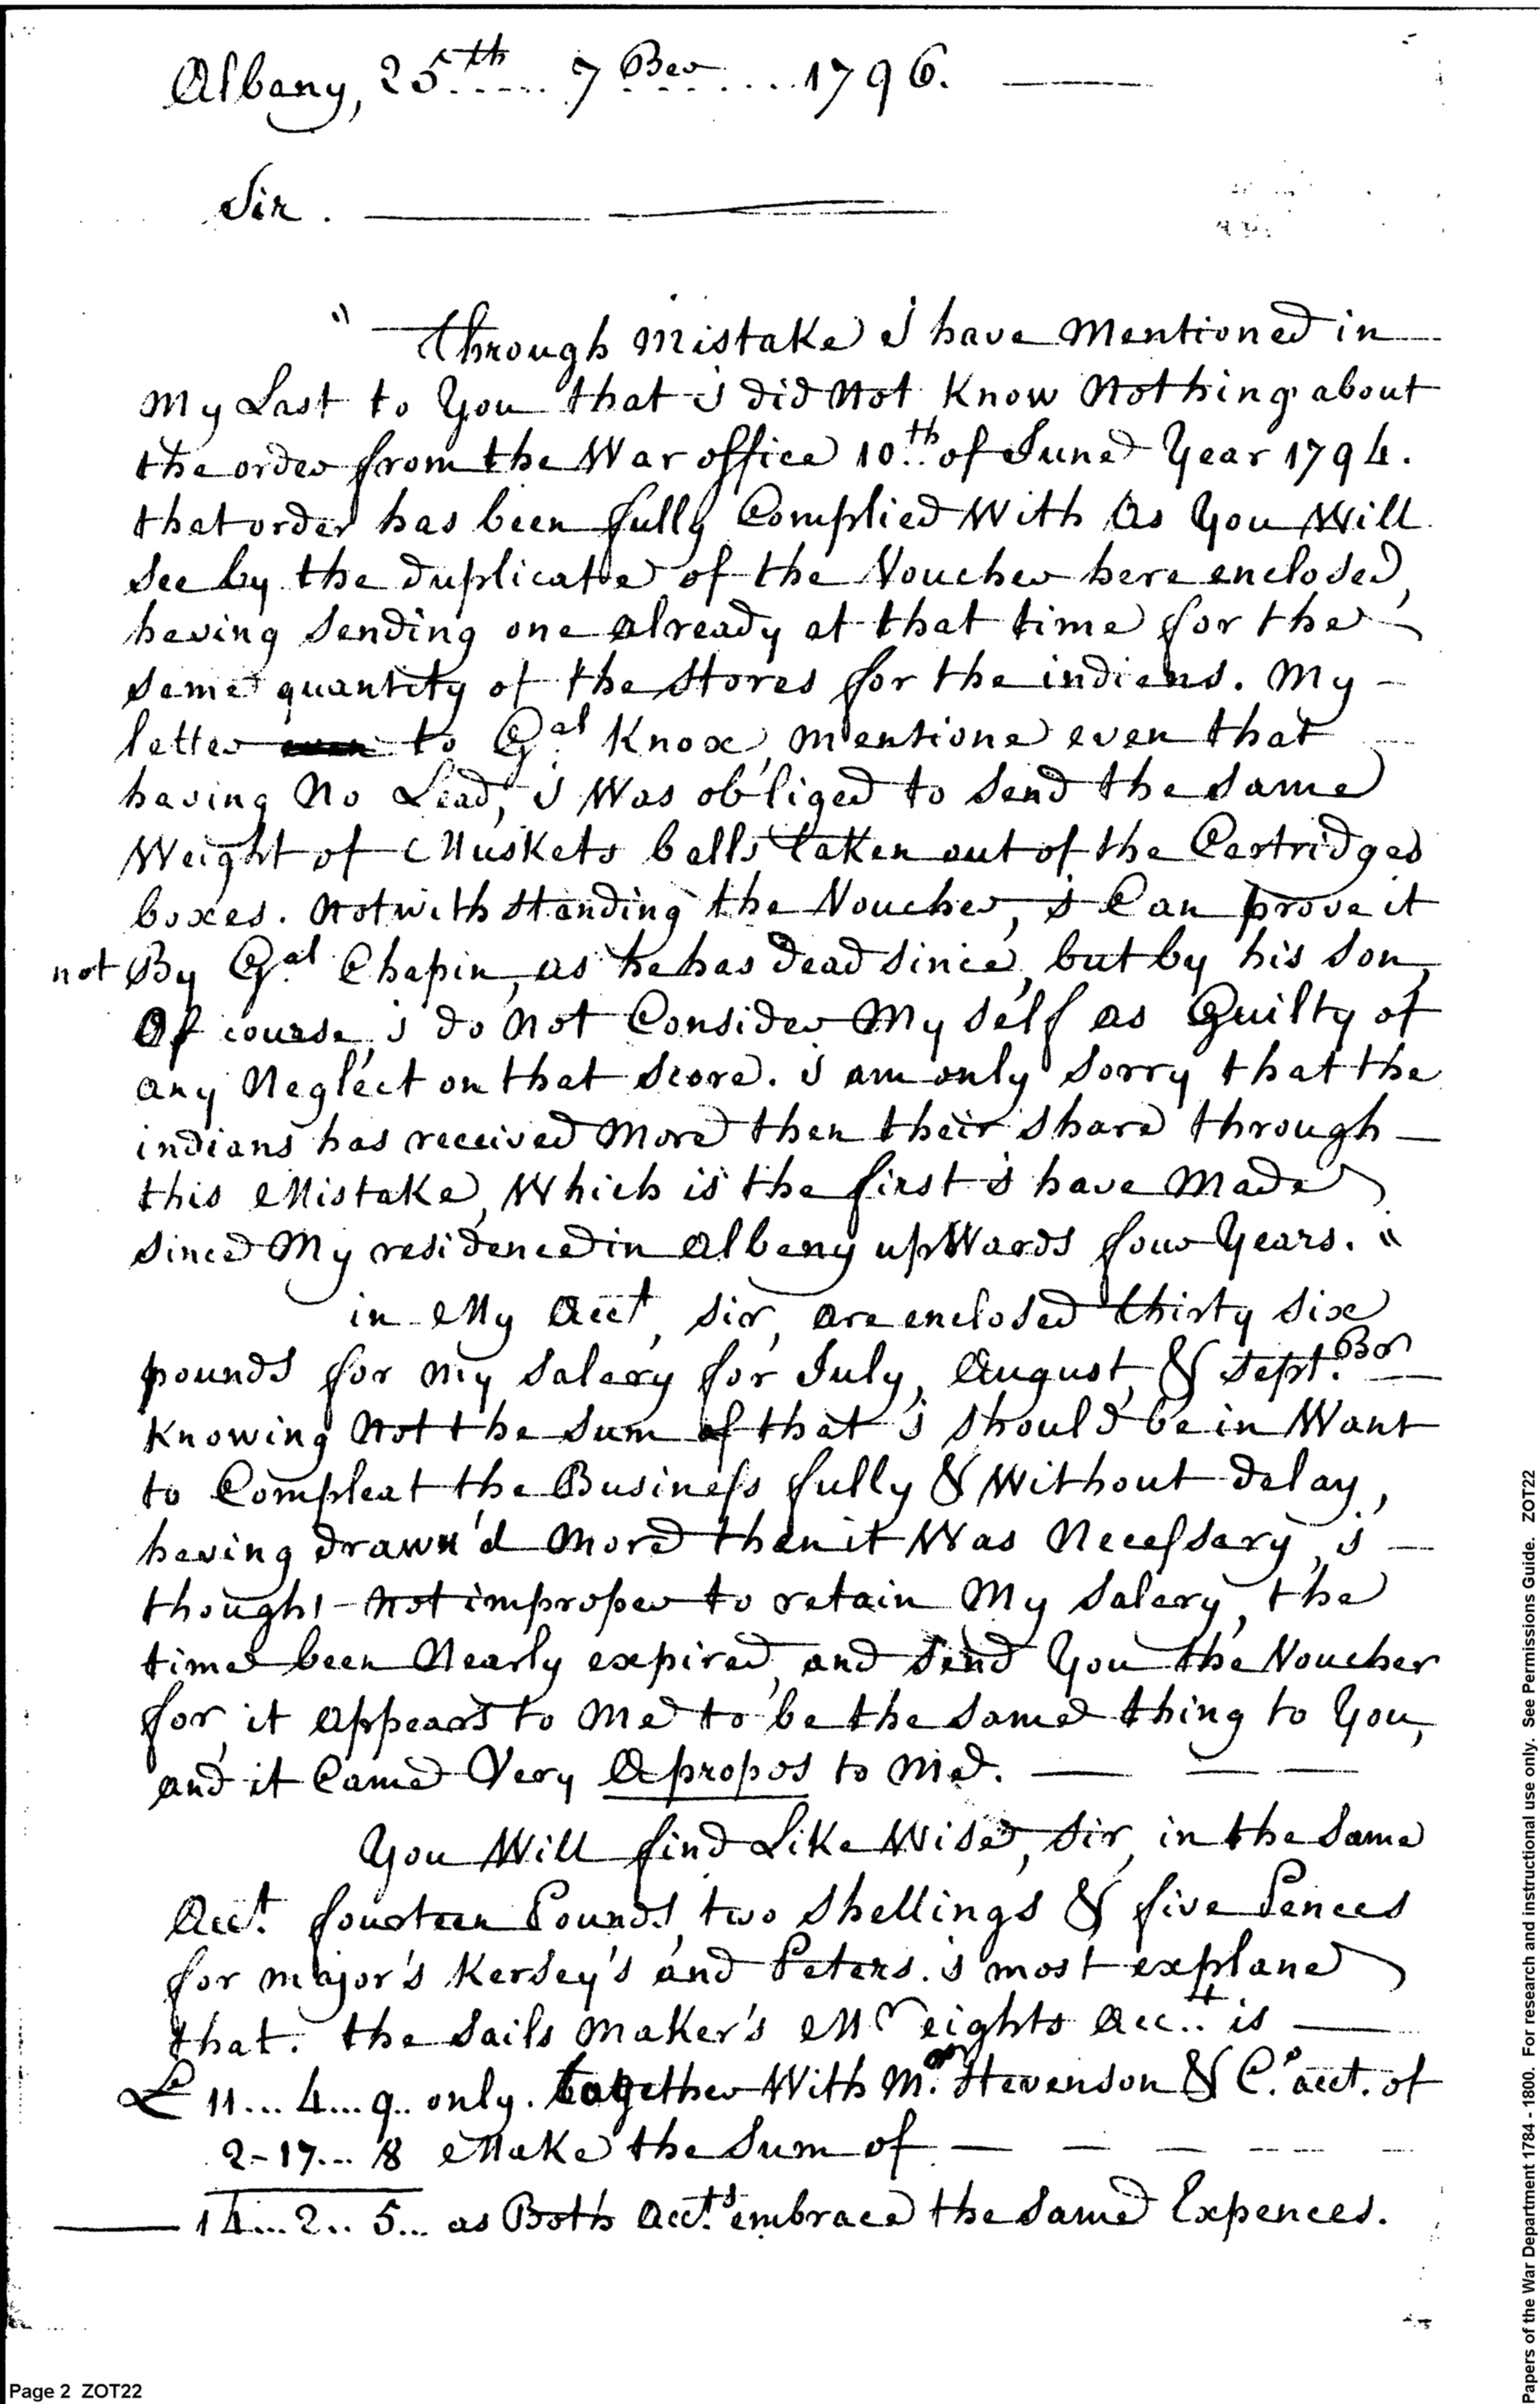 Albany, 25th..... 7Ber..... 1796.
Sir.
" Through Mistake i have Mentioned in
My Last to You that i did Not Know Nothing about
the order from the War office 10th of June Year 1794.
that order has been fully Complied With As You Will
See by the duplicate of the Voucher here enclosed,
having Sending one already at that time for the
Same quantity of the Stores for the indians. My
letter even to Gal Knox, mentione even that
having No Lead, i Was obliged to Send the Same
Weight of Muskets balls taken out of the Cartridges
boxes. Notwithstanding the Voucher, i Can prove it
not By Gal Chapin, as he has dead since, but by his Son,
Of course, i do Not Consider My Self as Guilty of
any Neglect on that Score. i am only Sorry that the
indians has received More then their Share through
this Mistake, Which is the first i have Made
Since My residence in Albany upWards four Years. "
in My Acct, Sir, are enclosed thirty Six
pounds for My Salary for July, August, & Sept.Ber
Knowing Not the Sum of that i Should be in Want
to Compleat the Business fully & Without delay,
having drawn'd More then it Was Necessary, i
thought Not improper to retain My Salary, the
time been Nearly expired, and Send You the Voucher
for, it Appears to Me to be the Same thing to You,
and it Came Very Apropos to Me.
You Will find LikeWise, Sir, in the Same
Acct. fourteen Pounds, two Shellings & five Pences
for Major's Kersey's and Peters. i most explane
that. the Sails Maker's Mr eights Acc.t is
£ 11... 4... 9.. only. together With Mr. Stevenson & Co. acct. of
2-17... 8 Make the Sum of
14... 2.. 5... as Both Accts. embrace the Same Expences.
Page 2 ZOT22
Papers of the War Department 1784 - 1800. For research and instructional use only. See Permissions Guide. ZOT22